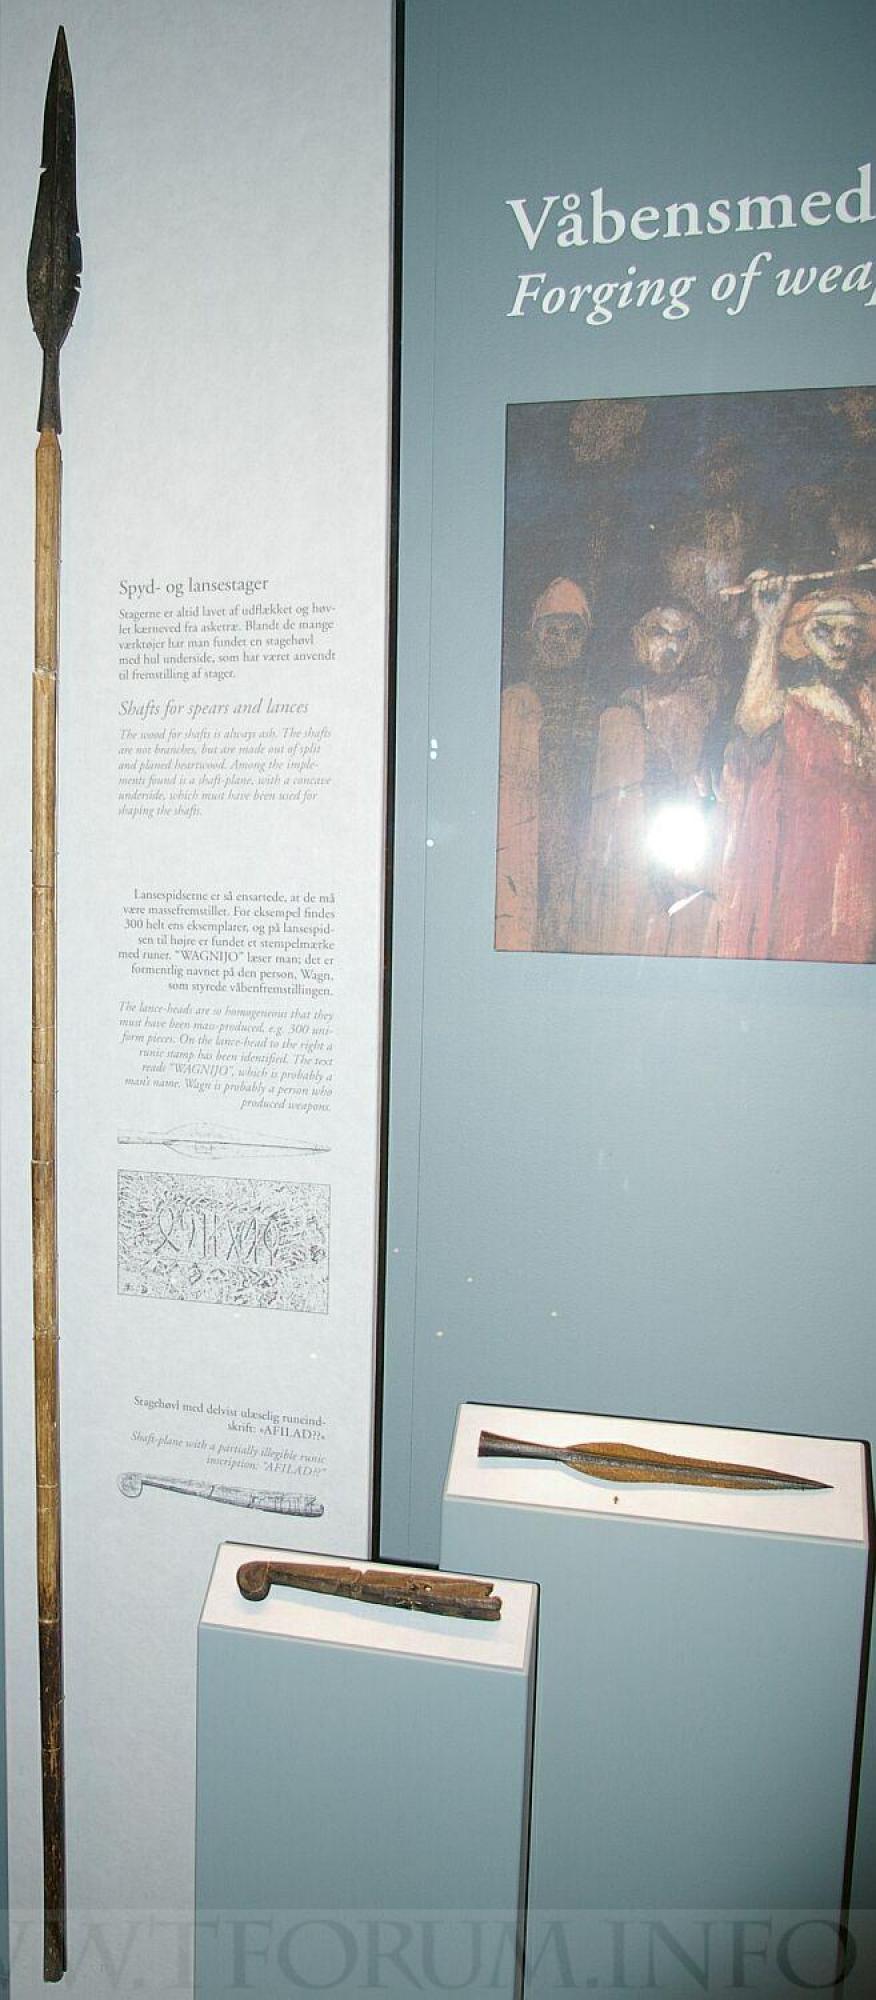 Våbensmed
Forging of wea
Spyd- og lansestager
Stagerne er altid lavet af udflækket og høv-
let kærneved fra asketræ. Blandt de mange
værktøjer har man fundet en stagehøvl
med hul underside, som har været anvendt
til fremstilling af stager.
Shafts for spears and lances
The wood for shafts is always ash. The shafts
are not branches, but are made out of split
and planed heartwood. Among the imple-
ments found is a shaft-plane, with a concave
underside, which must have been used for
shaping the shafts.
Lansespidserne er så ensartede, at de må
være massefremstillet. For eksempel findes
300 helt ens eksemplarer, og på lansespid-
sen til højre er fundet et stempelmærke
med runer. "WAGNIJO" læser man; det er
formentlig navnet på den person, Wagn,
som styrede våbenfremstillingen.
The lance-heads are so homogeneous that they
must have been mass-produced, e.g. 300 uni-
form pieces. On the lance-head to the right a
runic stamp has been identified. The text
reads "WAGNIJO", which is probably a
man's name. Wagn is probably a person who
produced weapons.
Stagehøvl med delvist ulæselig runeind-
skrift: »AFILAD??«
Shaft-plane with a partially illegible runic
inscription: "AFILAD??"
WW.TFORUM.INFO